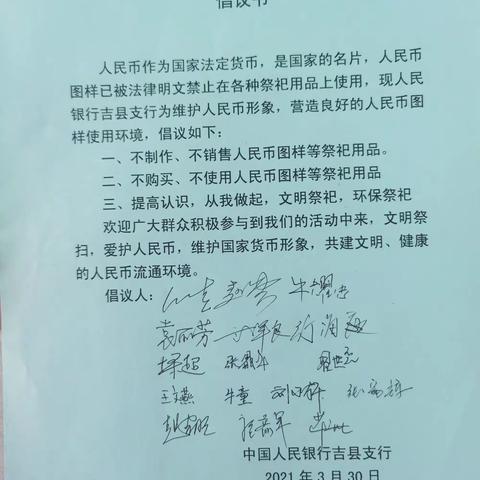 倡议书
人民币作为国家法定货币，是国家的名片，人民币
图样已被法律明文禁止在各种祭祀用品上使用，现人民
银行吉县支行为维护人民币形象，营造良好的人民币图
样使用环境，倡议如下：
一、不制作、不销售人民币图样等祭祀用品。
二、不购买、不使用人民币图样等祭祀用品
三、提高认识，从我做起，文明祭祀，环保祭祀
欢迎广大群众积极参与到我们的活动中来，文明祭
扫，爱护人民币，维护国家货币形象，共建文明、健康
的人民币流通环境。
倡议人：
袁丽芳
牛童
中国人民银行吉县支行
2021年3月30日